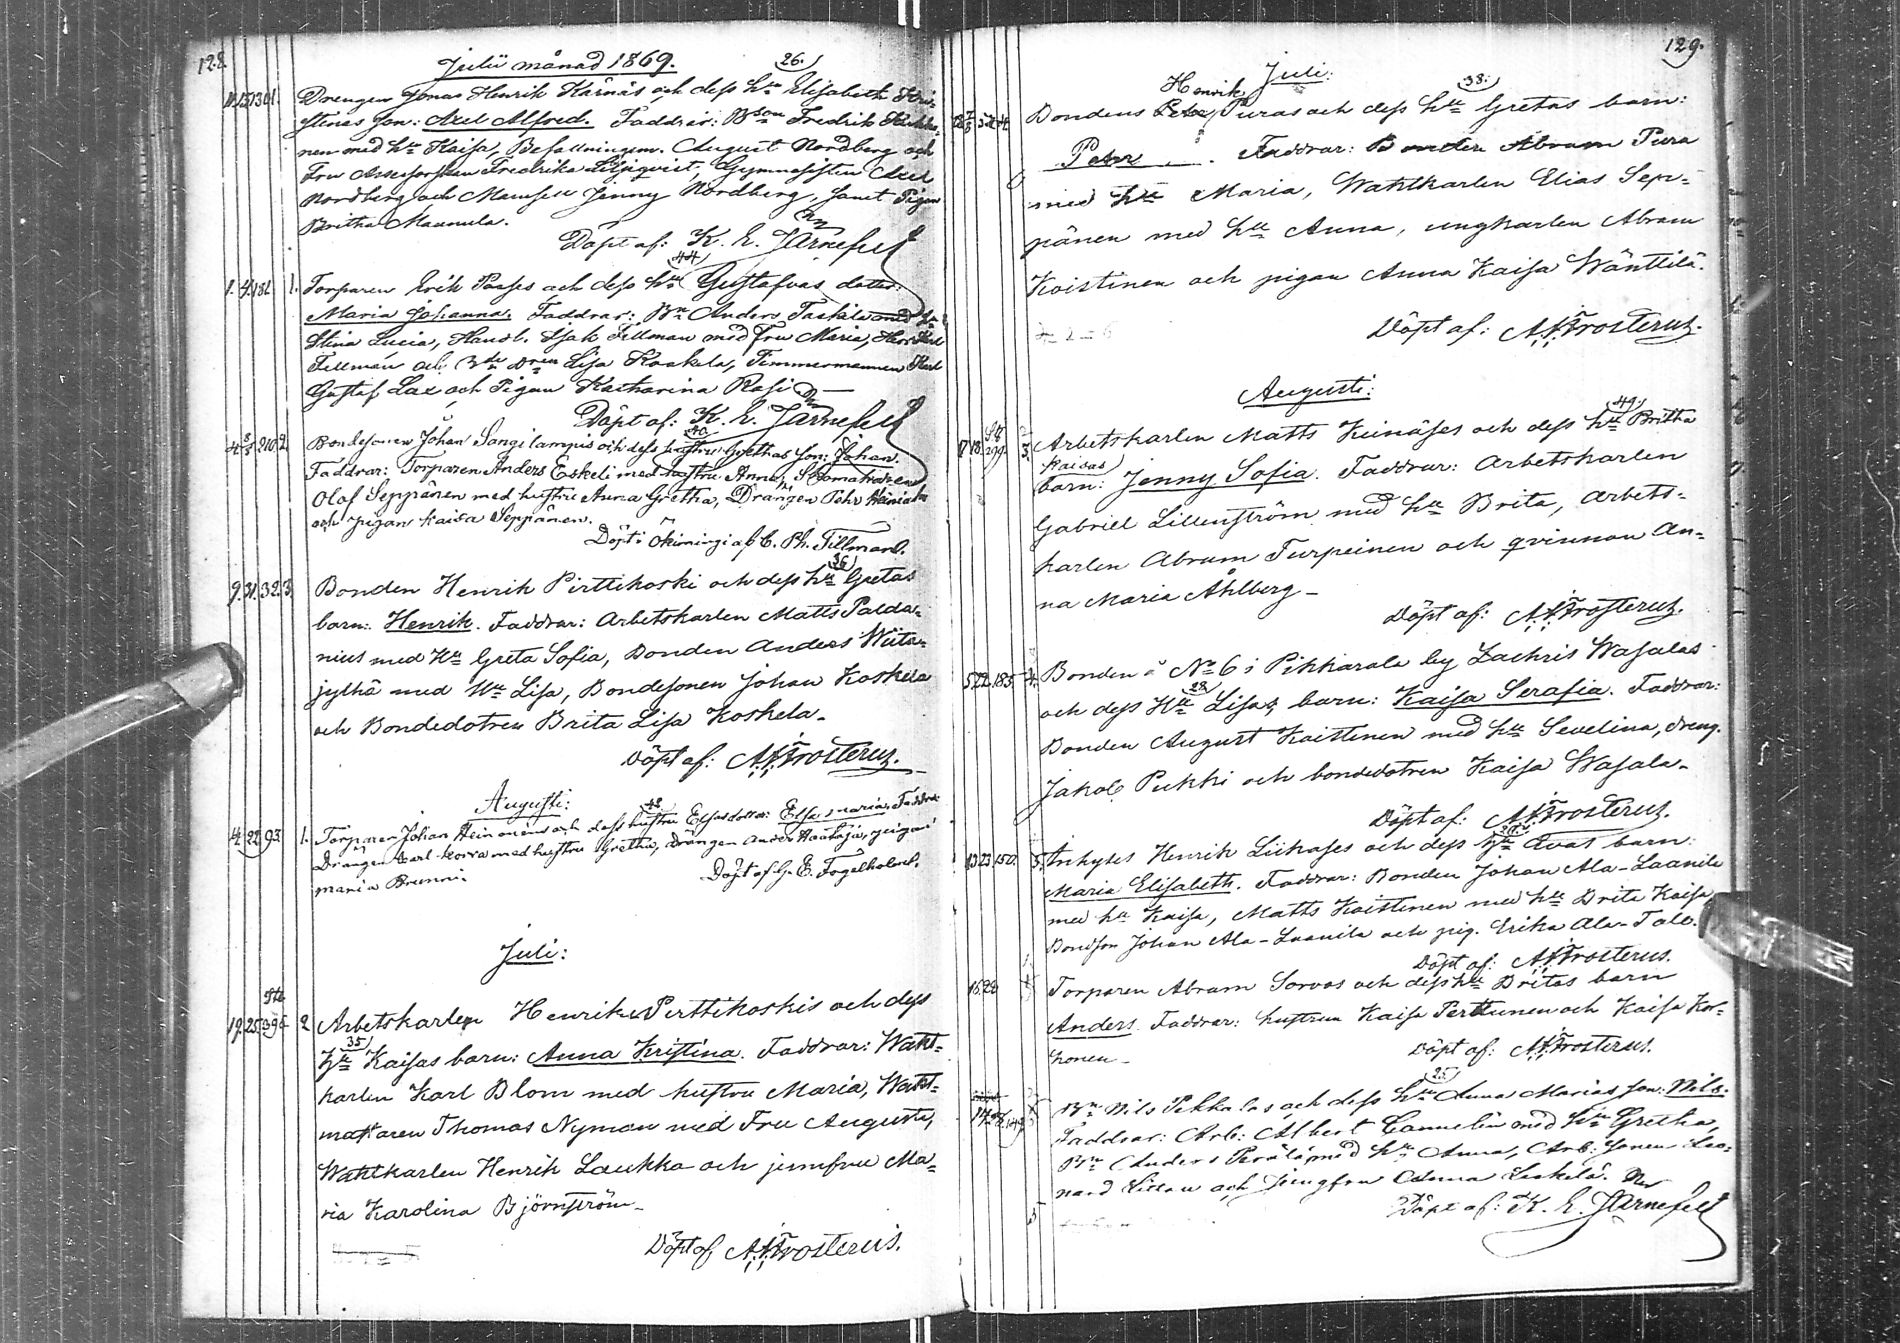 128.
Julii månad 1869. 26.
Drengen Jonas Henrik Kärnäs och dess h:u Elisabeth Kri-
stinas son: Axel Alfred. Faddrar: B:son Fredrik
nen med h:u Kaisa, Befallningsm. August Nordberg och
Fru Assessorskan Fredrika Liljeqvist, Gymnasisten Axel
Nordberg och Mamsell Jenny Nordberg, samt Pigan
Britha Maunula.
Döpt af: K. E. Järnefelt
44
1. 4. 182 1. Torparen Erik Paases och dess h:u Gustafvas dotter:
Maria Johanna. Faddrar: B:n Anders Taskila med h:u
Stina Lucia, Handl. Isak Fellman med Fru Maria, Herr
Fellman och B:de D:ren Lisa Koskela, Timmermannen Karl
Gustaf Lax och Pigan Katharina Rasi
Döpt af: K. E. Järnefelt
40
4. 8/8 210. 2. Bondesonen Johan Sangilampis och dess hustru Grethas son: Johan.
Faddrar: Torparen Anders Eskeli med hustru Anna,
Olof Seppänen med hustru Anna Gretha, Drängen Pehr
och pigan Kaisa Seppänen.
Döpt i Ökimingi af C. Ph. Tillman.
36
9. 31. 32. 3. Bonden Henrik Pirttikoski och dess h:u Gretas
barn: Henrik. Faddrar: Arbetskarlen Matts Palda-
nius med H:u Greta Sofia, Bonden Anders Wiita-
jylhä med H:u Lisa, Bondesonen Johan Koskela
och Bondedotren Brita Lisa Koskela.
Döpt af: A. F. Frosterus.
Augusti:
48
4. 22. 93. 1. Torparen Johan Heinonens och dess hustru Elsas dotter: Elsa Maria. Faddrar:
Drängen Karl Korva med hustru Gretha, Drängen Anders Haataja, pigan
Maria Brunni.
Döpt af G. E. Fogelholm.
Juli:
19. 25. 395 2 Arbetskarlen Henriks Perttikoskis och dess
35
h:u Kaisas barn: Anna Kristina. Faddrar: Wakt-
karlen Karl Blom med hustru Maria, Wakt-
mataren Thomas Nyman med Fru Augusta,
Waktkarlen Henrik Laukka och jumfru Ma-
ria Karolina Björnström.
Döpt af A. F. Frosterus.
129.
Juli:
Henrik 38.
Bondens Petr Puras och dess h:u Gretas barn:
Petr. Faddrar: Bonden Abram Pura
med h:u Maria, Waktkarlen Elias Sep-
pänen med h:u Anna, ungkarlen Abram
Koistinen och pigan Anna Kaisa Wänttilä.
Döpt af: A. F. Frosterus.
Augusti:
49.
17 18. 299. 3. Arbetskarlen Matts Keinäses och dess h:u Britha
Kaisas
barn: Jenny Sofia. Faddrar: Arbetskarlen
Gabriel Lillenström med h:u Brita, Arbets-
karlen Abram Turpeinen och qvinnan An-
na Maria Åhlberg.
Döpt af: A. F. Frosterus.
5. 22. 185. 4. Bonden å No 6 i Pikkarala by Zachris Wasalas
28.
och dess H:u Lisas barn: Kaisa Serafia. Faddrar:
Bonden August Koistinen med h:u Sevelina, dreng.
Jakob Pukki och bondedotren Kaisa Wasala.
Döpt af: A. F. Frosterus.
13. 23. 150. 5. Inhyses Henrik Liikases och dess h:u Evas barn:
Maria Elisabeth. Faddrar: Bonden Johan Ala-Laanila
med h:u Kaisa, Matts Koistinen med h:u Brita Kaisa,
Bondson Johan Ala-Laanila och pig. Erika Ala-Talo.
Döpt af: A. F. Frosterus.
16. 22 Torparen Abram Sorvos och dess h:u Britas barn
Anders. Faddrar: hustrun Kaisa Perttunen och Kaisa Kor-
honen.
Döpt af: A. F. Frosterus.
25.
B:n Nils Pekkalas och dess h:u Anna Marias son: Nils.
Faddrar: Arb: Albert Cannelin med h:u Gretha,
B:n Anders Perälä med h:u Anna, Arb: sonen Leo-
nard och Jungfru Anna Laskela.
Döpt af: K. E. Järnefelt